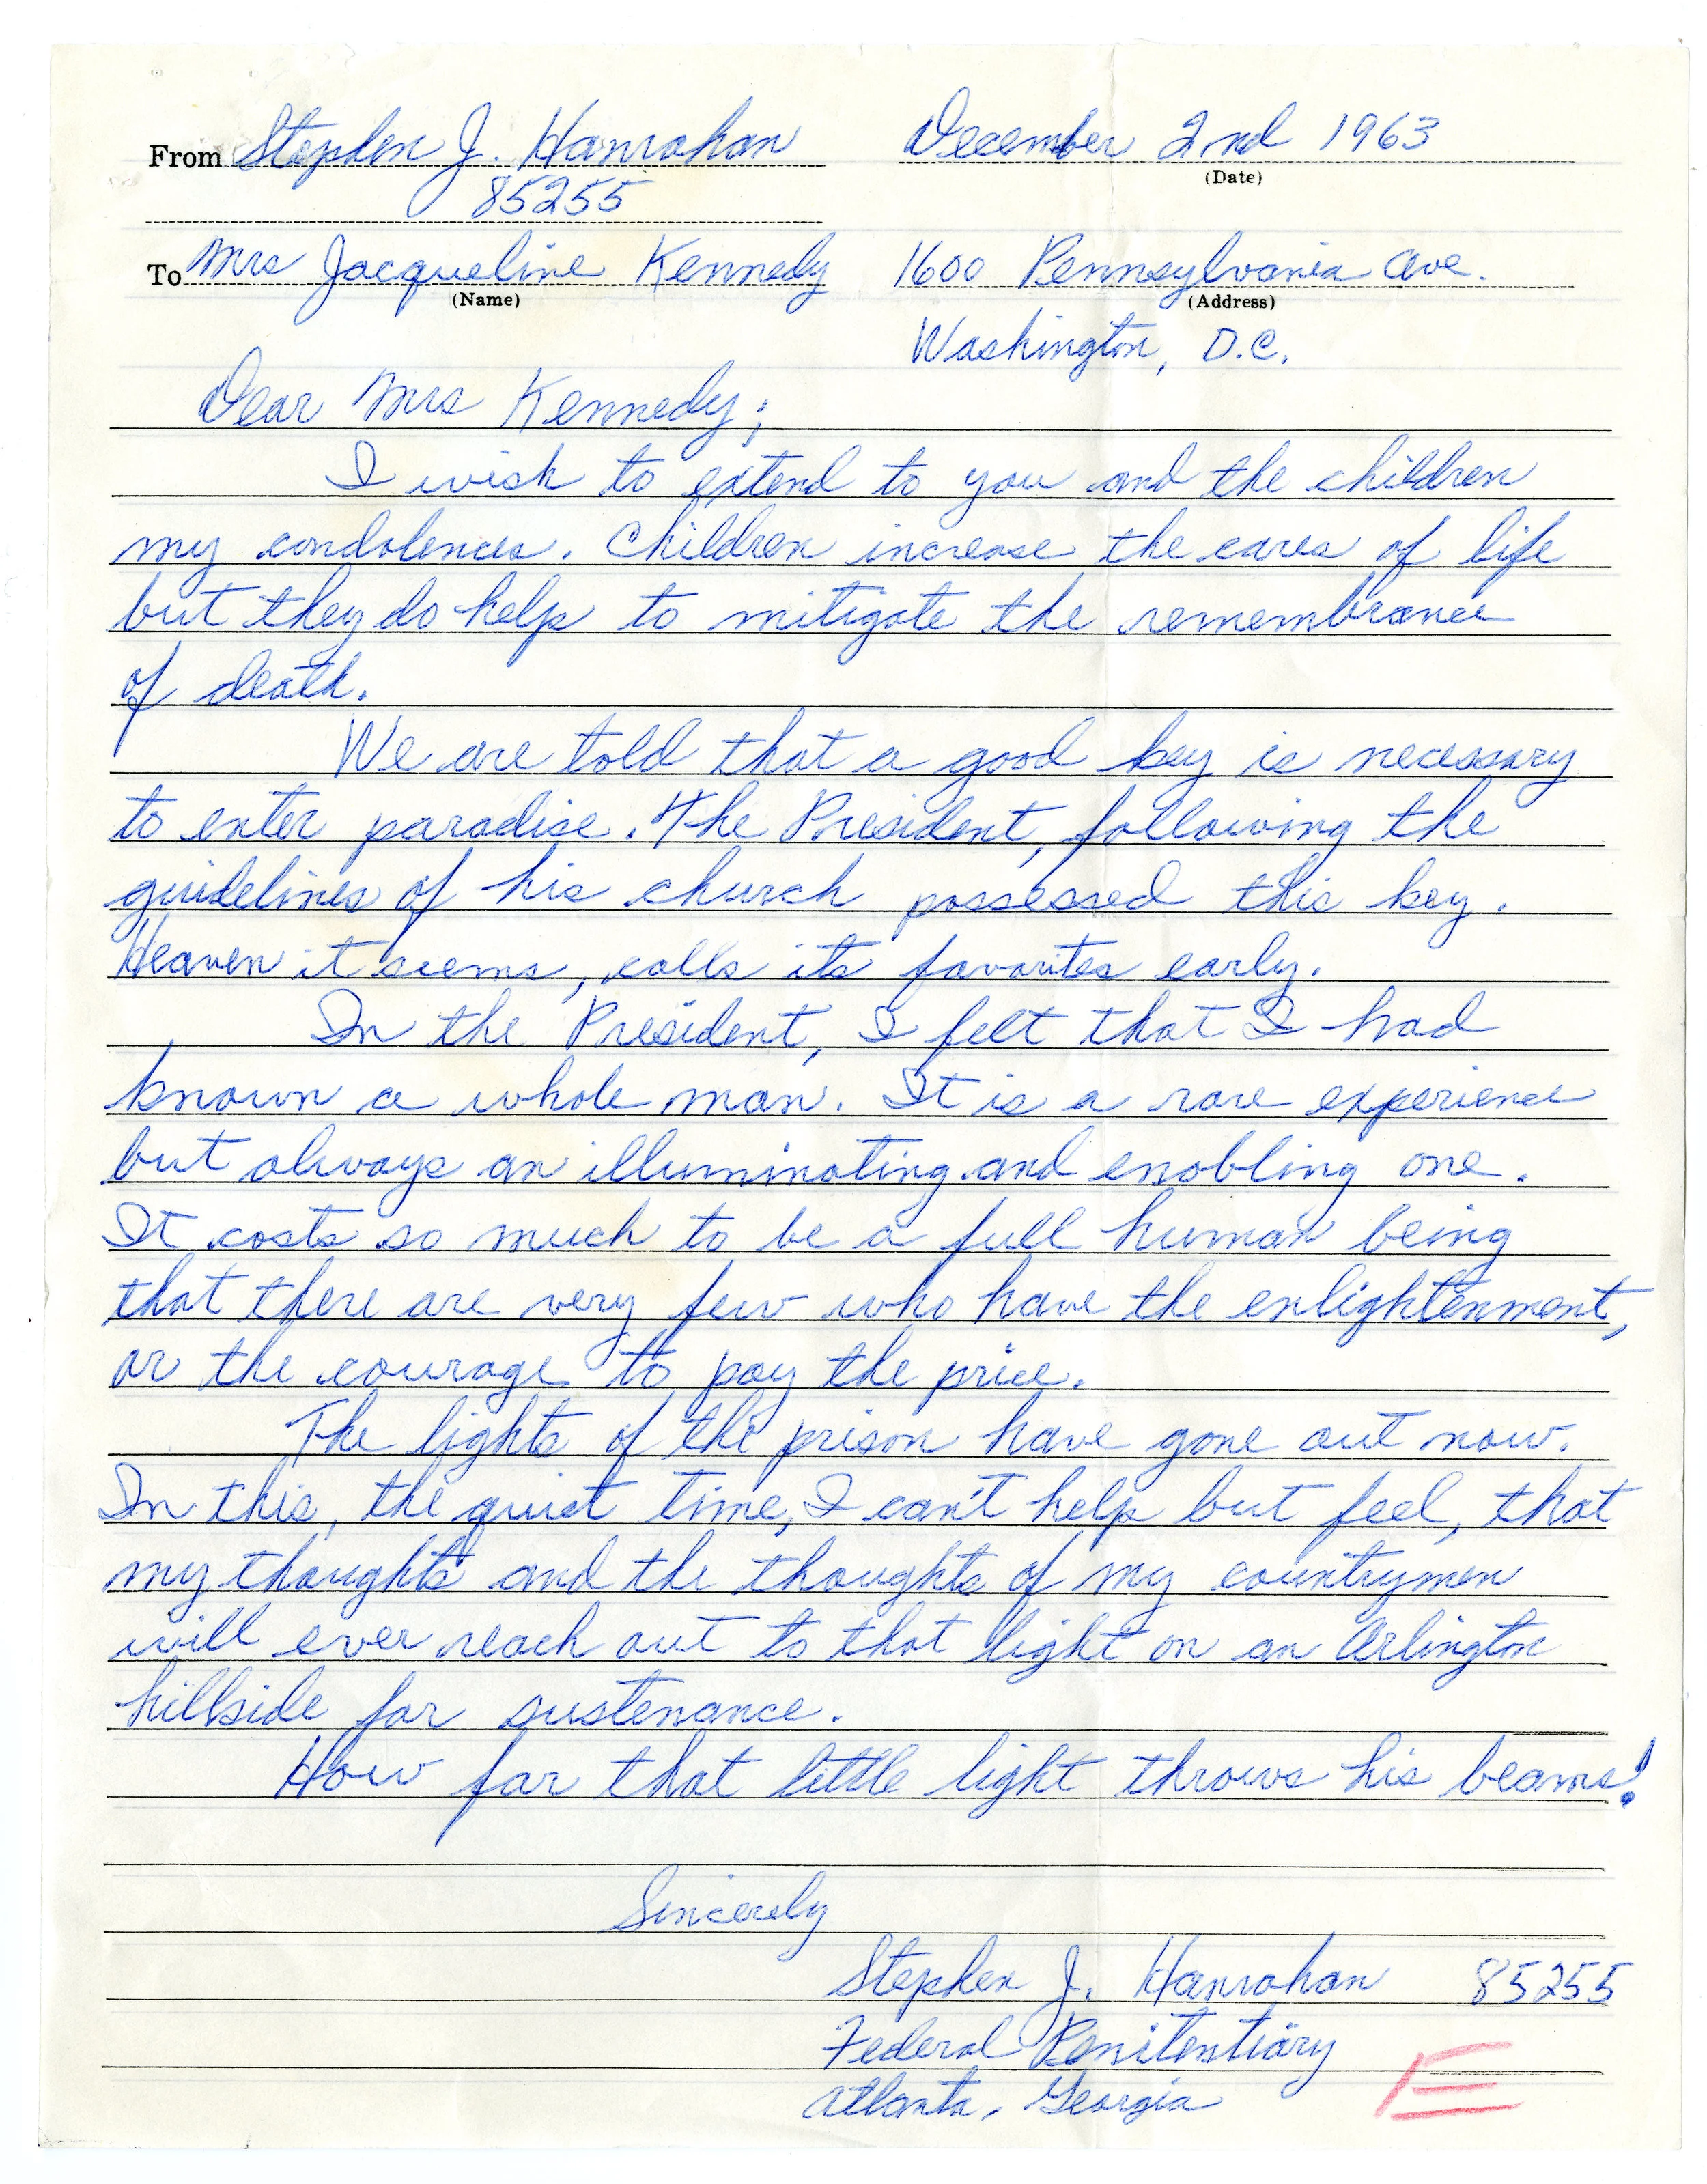 From Stephen J. Hanrahan December 2nd 1963
(Date)
85255
To Mrs Jacqueline Kennedy 1600 Pennsylvania Ave.
(Name) (Address)
Washington, D.C.
Dear Mrs Kennedy;
I wish to extend to you and the children
my condolences. Children increase the cares of life
but they do help to mitigate the remembrance
of death.
We are told that a good key is necessary
to enter paradise. The President, following the
guidelines of his church possessed this key.
Heaven it seems, calls its favorites early.
In the President, I felt that I had
known a whole man. It is a rare experience
but always an illuminating and enobling one.
It costs so much to be a full human being
that there are very few who have the enlightenment,
or the courage to pay the price.
The lights of the prison have gone out now.
In this, the quiet time, I can't help but feel, that
my thoughts and the thoughts of my countrymen
will ever reach out to that light on an Arlington
hillside for sustenance.
How far that little light throws his beams!
Sincerely
Stephen J. Hanrahan 85255
Federal Penitentiary
Atlanta, Georgia